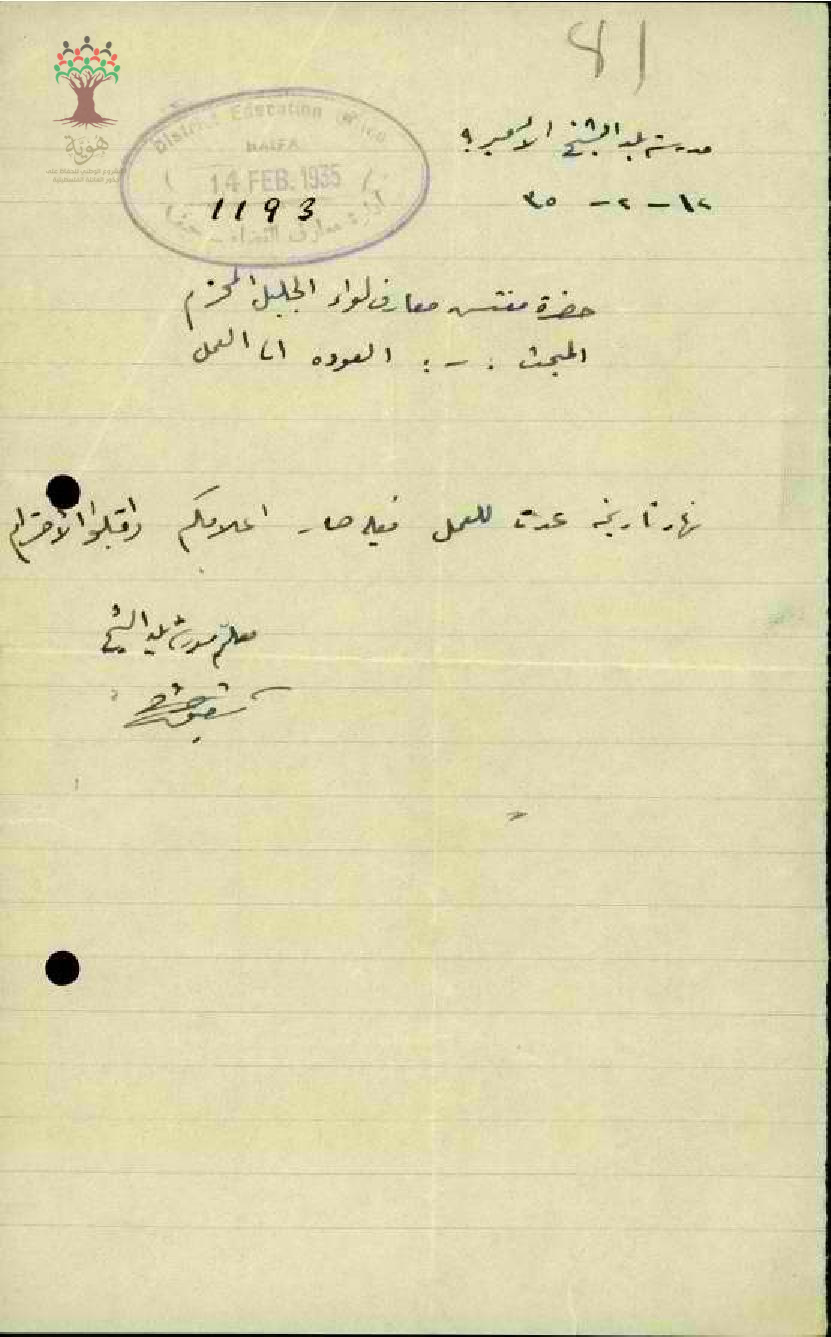 81
District Education Office
HAIFA
14 FEB. 1935
1193
هوية
مدرسة بلد الشيخ الاميرية
١٢ - ٢ - ٣٥
حضرة مفتش معارف لواء الجليل المحترم
المبحث : - : العوده الى العمل
نهار تاريخه عدت للعمل فعليه صار اعلامكم واقبلوا الاحترام
معلم مدرسة بلد الشيخ